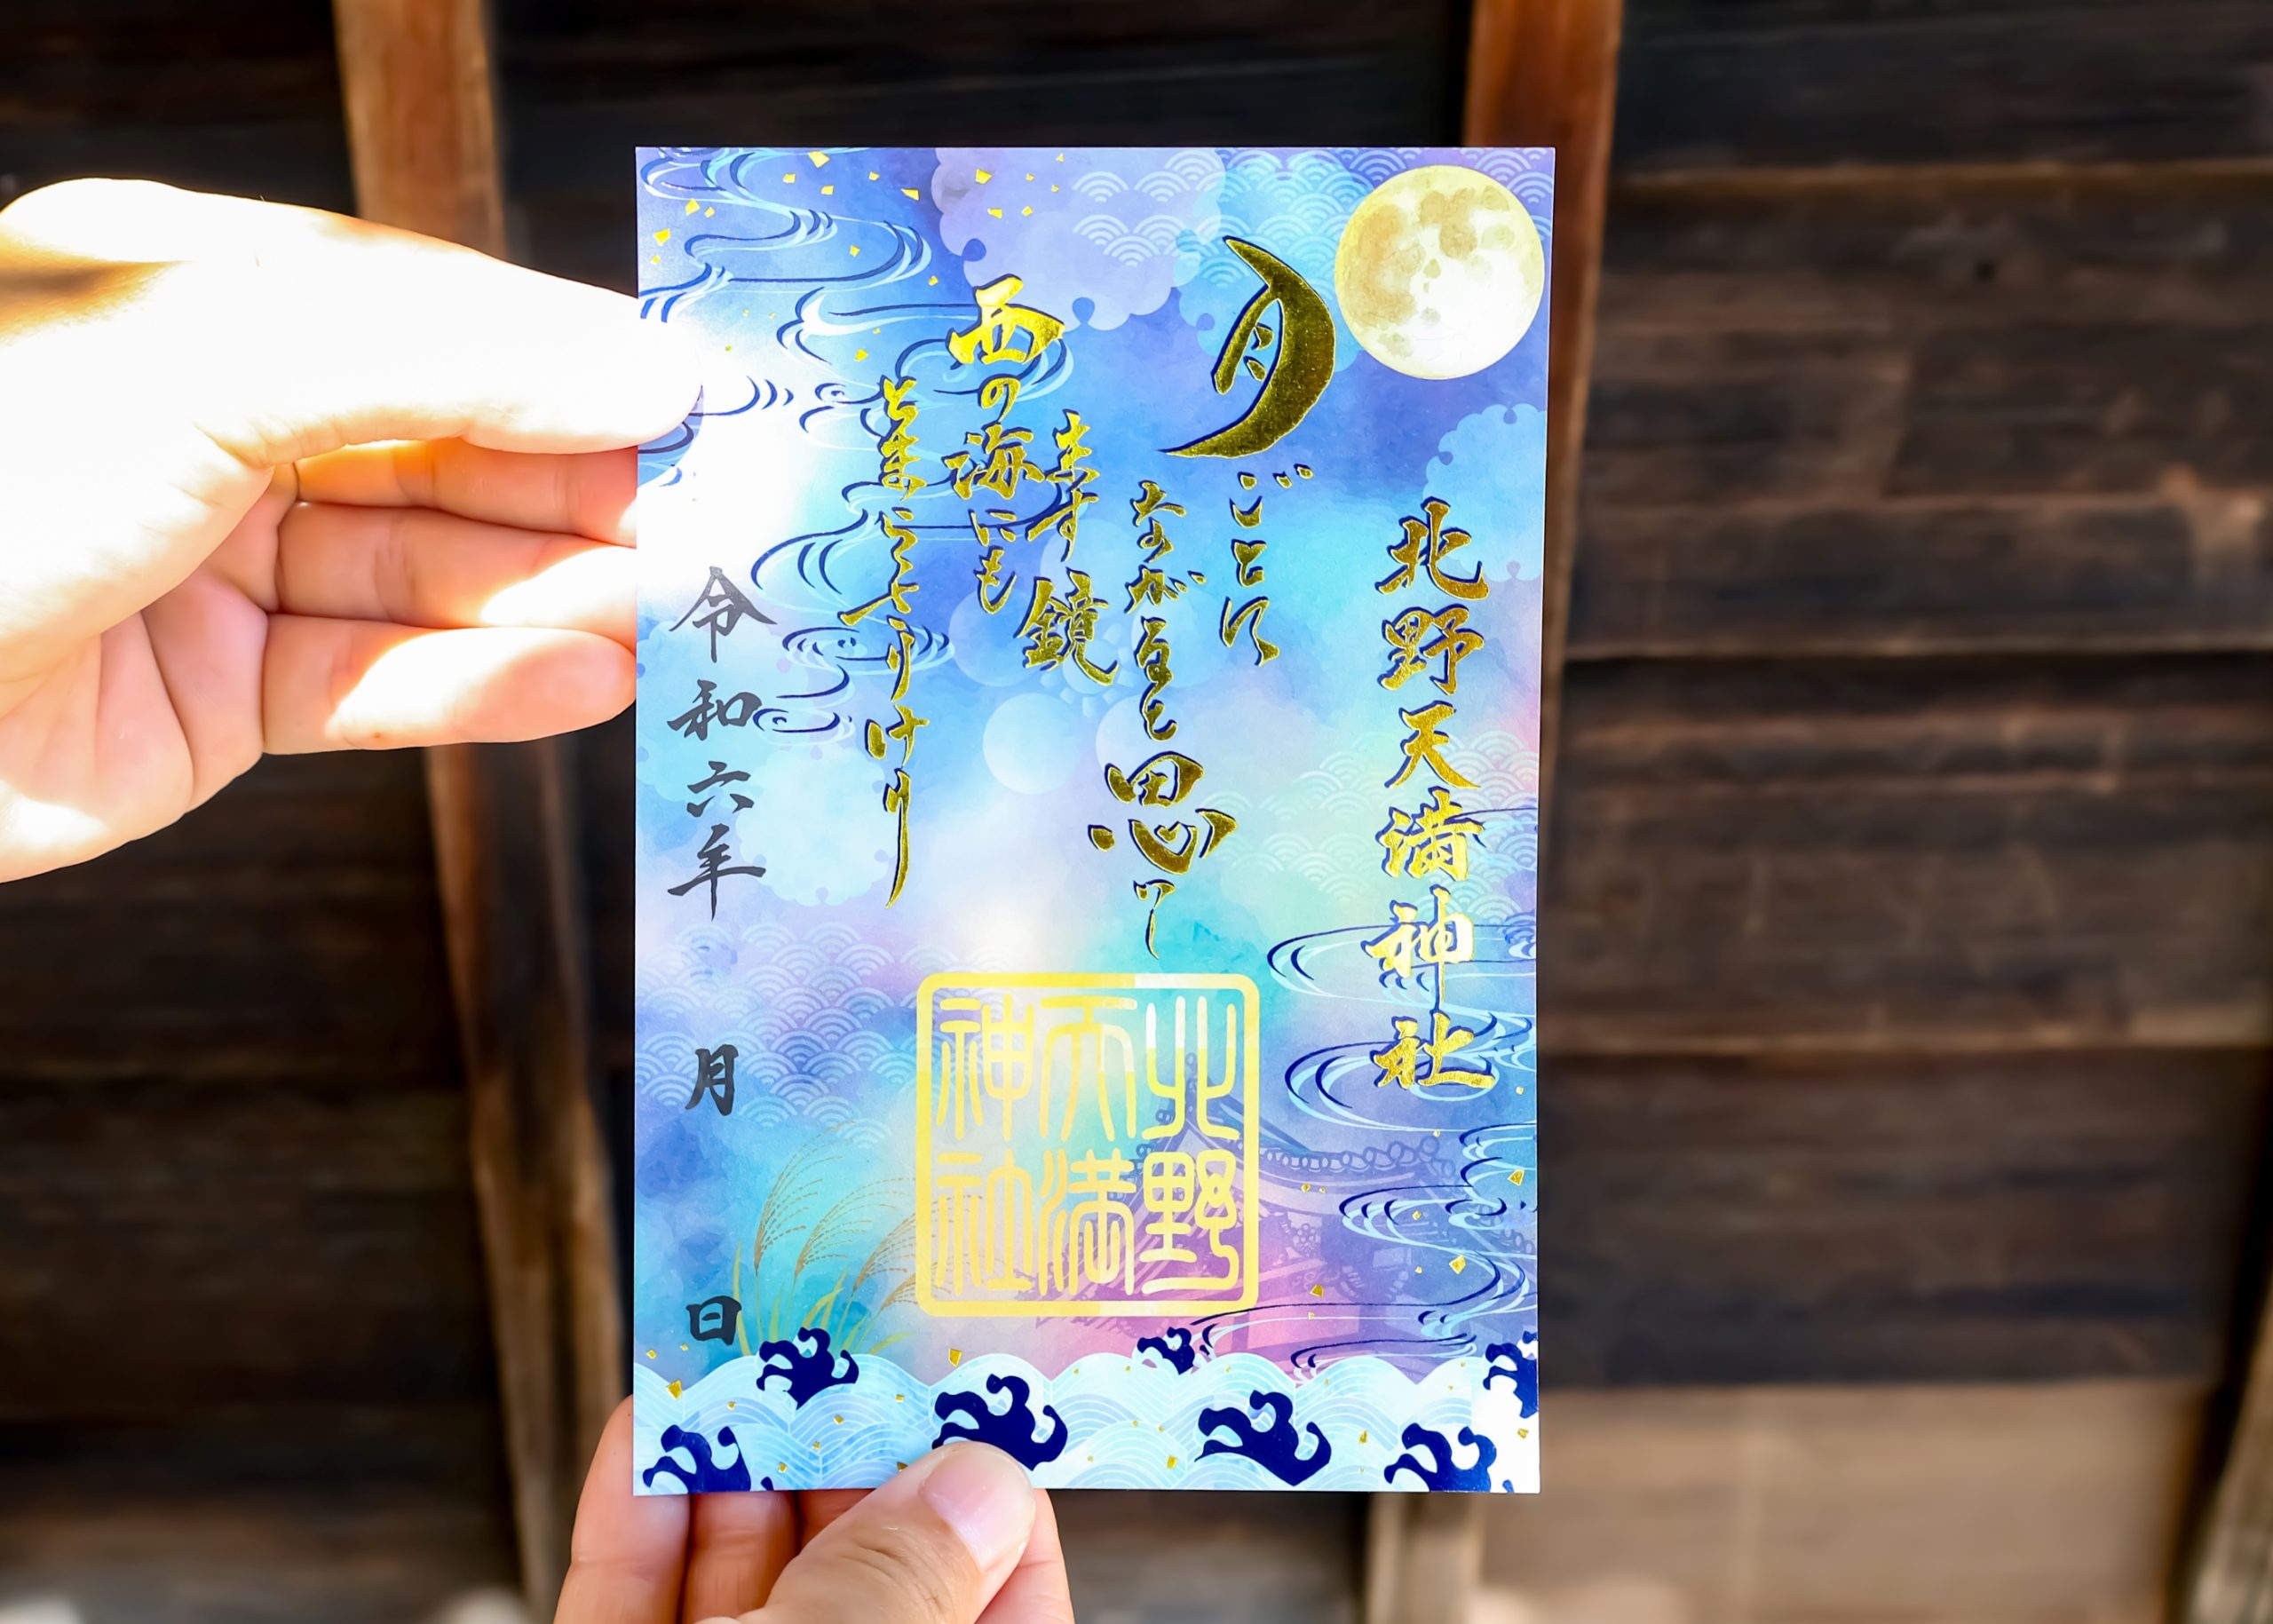 北野天満神社
月ごとに
ながると思ひし
ます鏡
西の海にも
とまらざりけり
令和六年 月 日
北野
天満
神社